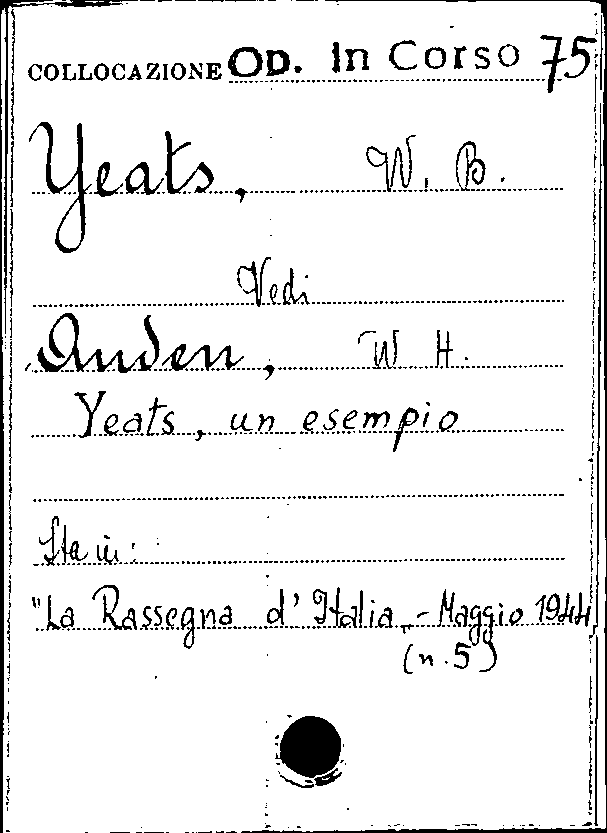 COLLOCAZIONE OD. In Corso 75
Yeats, W. B.
Vedi
Auden, W H.
Yeats, un esempio
Sta in:
"La Rassegna d'Italia„ - Maggio 1944
(n. 5)